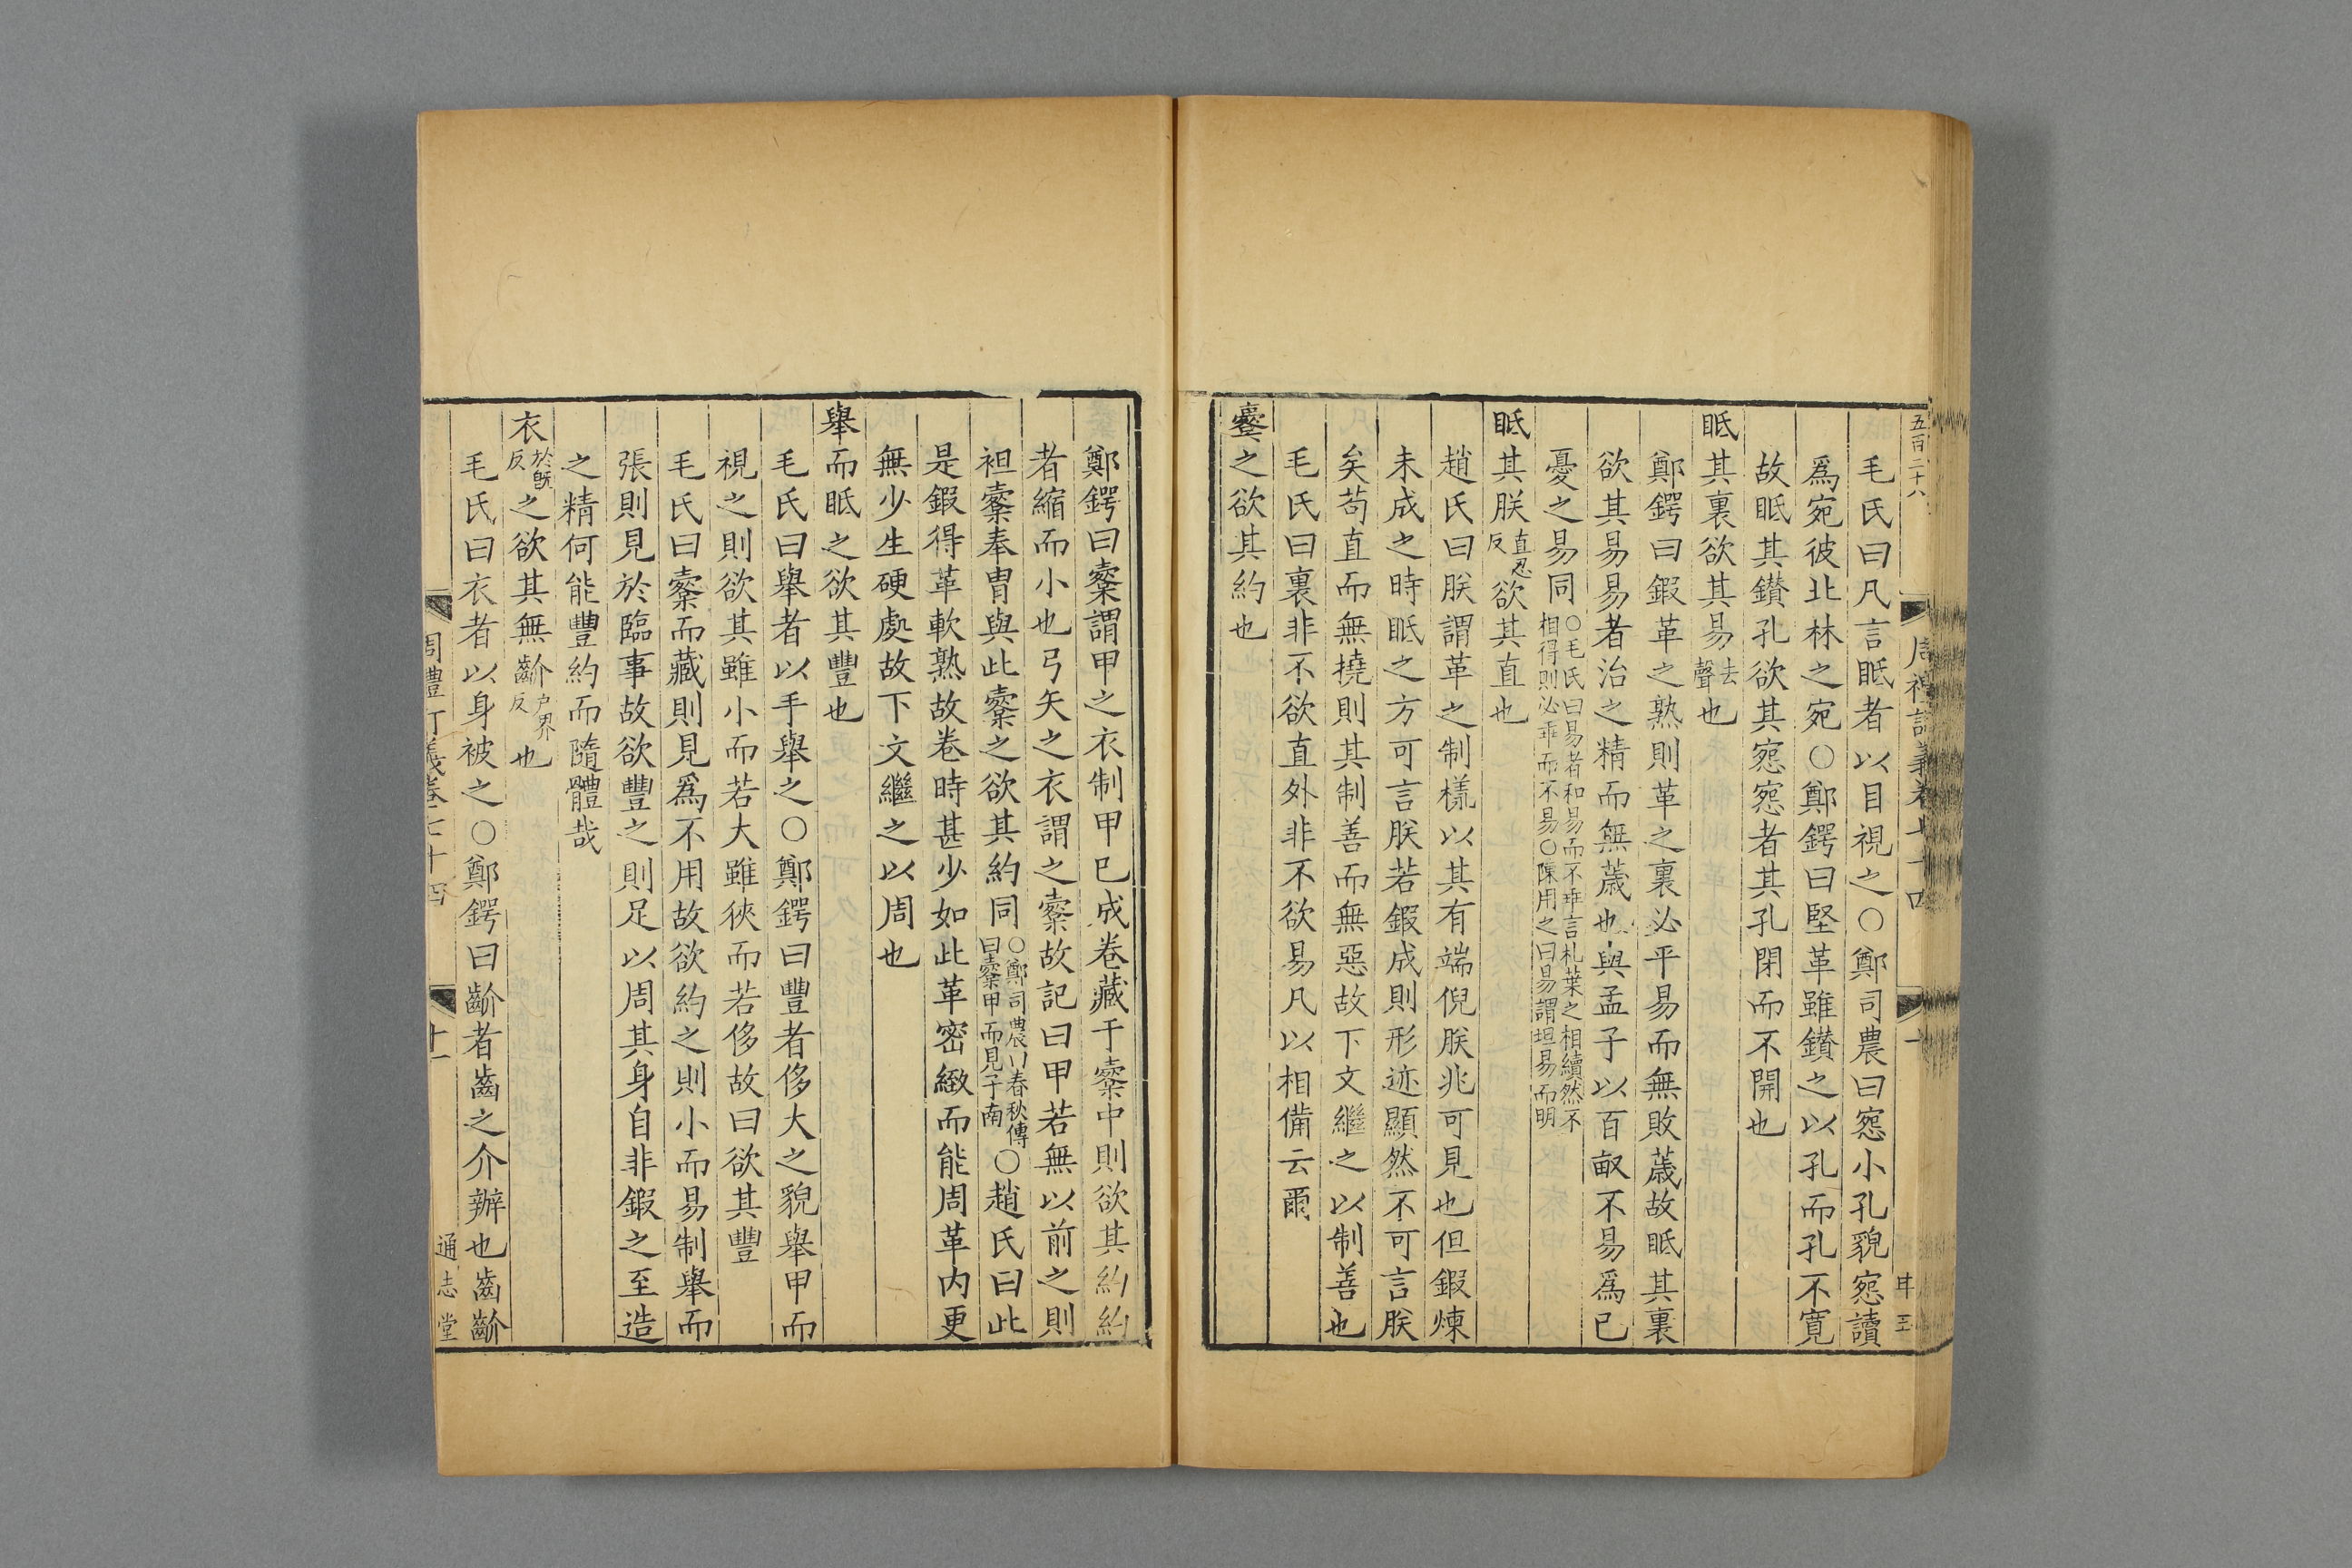 五百二十八
毛氏曰凡言眂者以目視之○鄭司農曰窓小孔貌窓讀
爲宛彼北林之宛○鄭鍔曰堅革雖鑚之以孔而孔不寛
故眂其鑚孔欲其窓窓者其孔閉而不開也
眂其裏欲其易去聲也
鄭鍔曰鍜革之熟則革之裏必平易而無敗薉故眂其裏
欲其易易者治之精而無薉也與孟子以百畝不易爲已
憂之易同○毛氏曰易者和易而不乖言札葉之相續然不相得則必乖而不易○陳用之曰易謂坦易而明
眂其朕直忍反欲其直也
趙氏曰朕謂革之制樣以其有端倪朕兆可見也但鍜煉
未成之時眂之方可言朕若鍜成則形迹顯然不可言朕
矣苟直而無撓則其制善而無惡故下文繼之以制善也
毛氏曰裏非不欲直外非不欲易凡以相備云爾
櫜之欲其約也
鄭鍔曰櫜謂甲之衣制甲已成卷藏于櫜中則欲其約約
者縮而小也弓矢之衣謂之櫜故記曰甲若無以前之則
袒櫜奉胄與此櫜之欲其約同○鄭司農以春秋傳曰櫜甲而見子南○趙氏曰此
是鍜得革軟熟故卷時甚少如此革密緻而能周革内更
無少生硬處故下文繼之以周也
舉而眂之欲其豐也
毛氏曰舉者以手舉之○鄭鍔曰豐者侈大之貌舉甲而
視之則欲其雖小而若大雖狹而若侈故曰欲其豐
毛氏曰櫜而藏則見爲不用故欲約之則小而易制舉而
張則見於臨事故欲豐之則足以周其身自非鍜之至造
之精何能豐約而隨體哉
衣於旣反之欲其無齘戶界反也
毛氏曰衣者以身被之○鄭鍔曰齘者齒之介辦也齒齘
周禮訂義卷七十四
十一
通志堂